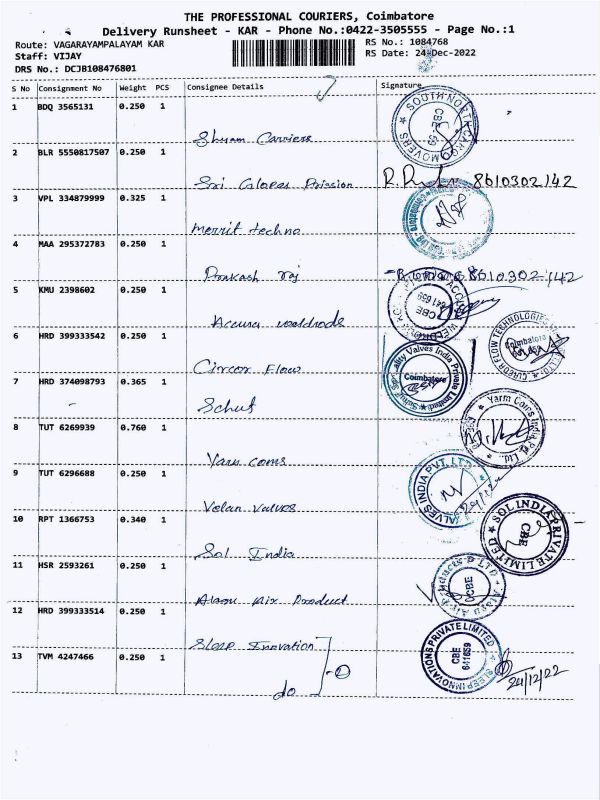 THE PROFESSIONAL COURIERS, Coimbatore
Delivery Runsheet - KAR - Phone No.:0422-3505555 - Page No.:1
Route: VAGARAYAMPALAYAM KAR
RS No.: 1084768
Staff: VIJAY
RS Date: 24-Dec-2022
DRS No.: DCJB108476801
S No Consignment No Weight PCS Consignee Details Signature
1 BDQ 3565131 0.250 1
Shyam Carriers
SOUTH NORTH CARGO MOVERS CBE
2 BLR 5550817507 0.250 1
Sri 8610302142
3 VPL 334879999 0.325 1
Merrit techno
4 MAA 295372783 0.250 1
Prakash raj 8610302142
5 KMU 2398602 0.250 1
Accura weldrods
CBE 641659
6 HRD 399333542 0.250 1
Circor Flow
CIRCOR FLOW TECHNOLOGIES Coimbatore
7 HRD 374098793 0.365 1
Schuf
Valves India Private Limited Coimbatore
8 TUT 6269939 0.760 1
Yarn coms
Yarm Coms India Pvt. Ltd.
9 TUT 6296688 0.250 1
Velan Valves
VALVES INDIA PVT. LTD.
10 RPT 1366753 0.340 1
Sol India
SOL INDIA PRIVATE LIMITED CBE
11 HSR 2593261 0.250 1
Product
CBE
12 HRD 399333514 0.250 1
Sleep Innovation
SLEEP INNOVATIONS PRIVATE LIMITED CBE 641659
13 TVM 4247466 0.250 1
do
24/12/22